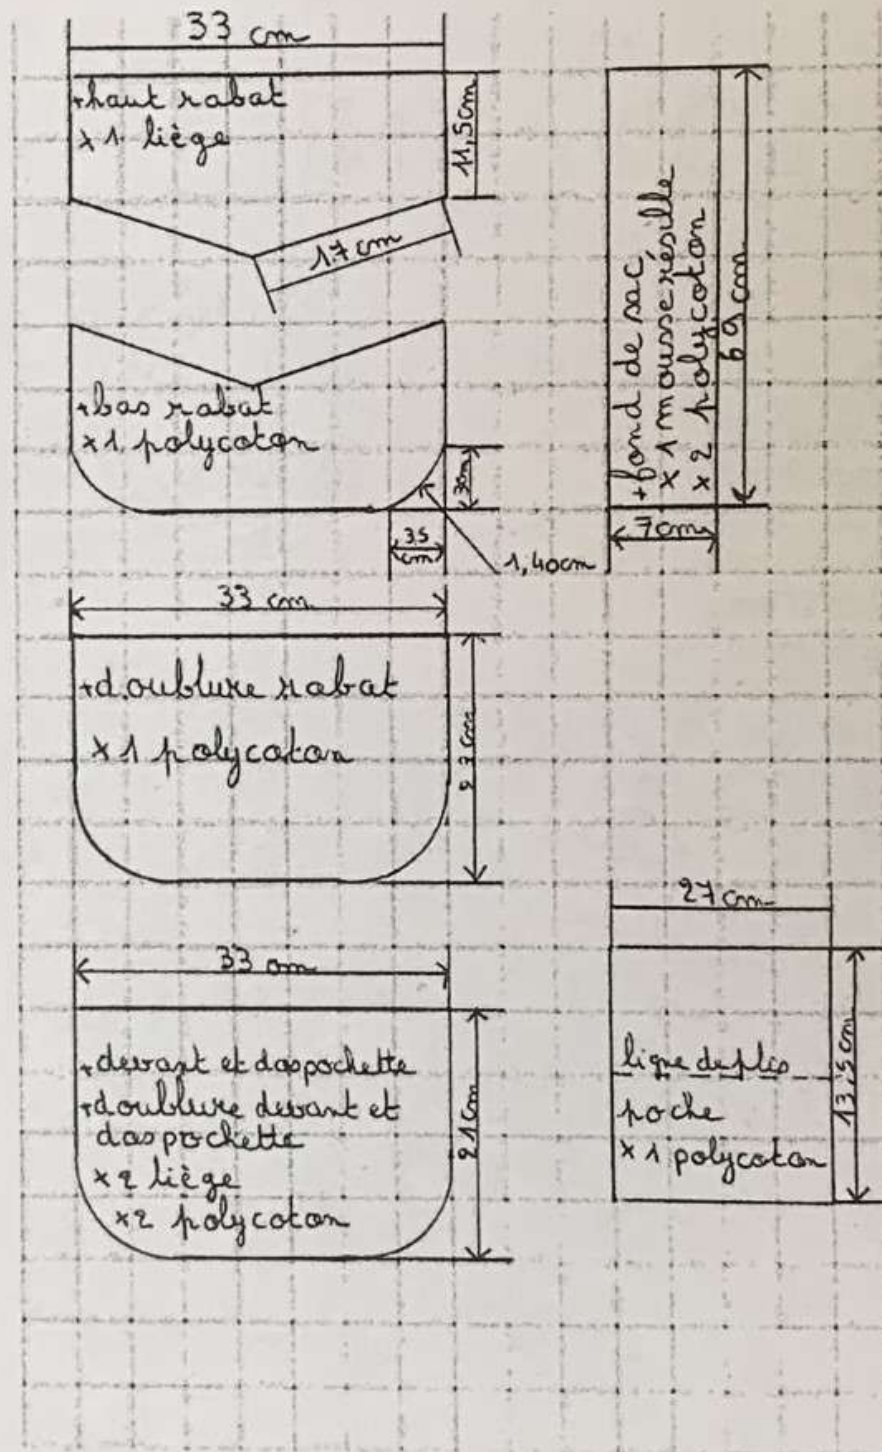 33 cm
+haut rabat
x 1 liège
11,5cm
17 cm
+bas rabat
x 1 polycoton
3cm
3,5
cm
1,40cm
+fond de sac
x 1 mousse résille
x 2 polycoton
69 cm
7cm
33 cm
+doublure rabat
x 1 polycoton
23 cm
33 cm
+devant et dos pochette
+doublure devant et
dos pochette
x 2 liège
x2 polycoton
21 cm
27 cm
ligne de plis
poche
x 1 polycoton
13,5 cm